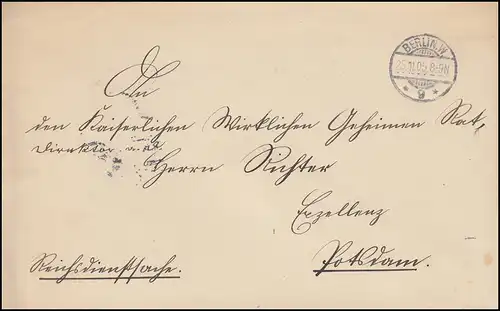 BERLIN.W.
25.11.05.8-9N
* 9 *
An
den Kaiserlichen Wirklichen Geheimen Rat,
Direktor a.D.
Herrn Richter
Exzellenz
Potsdam.
Reichsdienstsache.